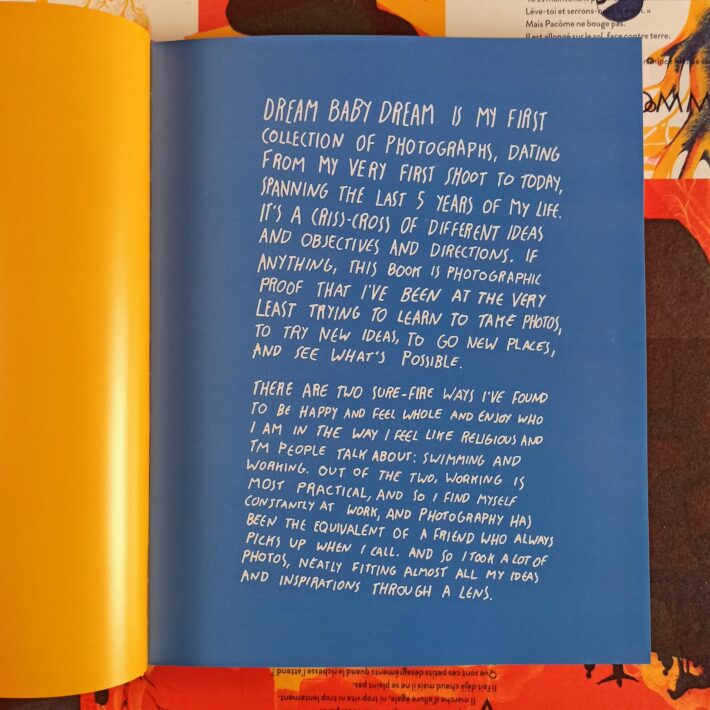 Lève-toi et serrons-
Mais Pacôme ne bouge pas.
Il est allongé sur le sol, face contre terre.
DREAM BABY DREAM IS MY FIRST
COLLECTION OF PHOTOGRAPHS, DATING
FROM MY VERY FIRST SHOOT TO TODAY,
SPANNING THE LAST 5 YEARS OF MY LIFE.
IT'S A CRISS-CROSS OF DIFFERENT IDEAS
AND OBJECTIVES AND DIRECTIONS. IF
ANYTHING, THIS BOOK IS PHOTOGRAPHIC
PROOF THAT I'VE BEEN AT THE VERY
LEAST TRYING TO LEARN TO TAKE PHOTOS,
TO TRY NEW IDEAS, TO GO NEW PLACES,
AND SEE WHAT'S POSSIBLE.
THERE ARE TWO SURE-FIRE WAYS I'VE FOUND
TO BE HAPPY AND FEEL WHOLE AND ENJOY WHO
I AM IN THE WAY I FEEL LIKE RELIGIOUS AND
TM PEOPLE TALK ABOUT: SWIMMING AND
WORKING. OUT OF THE TWO, WORKING IS
MOST PRACTICAL, AND SO I FIND MYSELF
CONSTANTLY AT WORK, AND PHOTOGRAPHY HAS
BEEN THE EQUIVALENT OF A FRIEND WHO ALWAYS
PICKS UP WHEN I CALL. AND SO I TOOK A LOT OF
PHOTOS, NEATLY FITTING ALMOST ALL MY IDEAS
AND INSPIRATIONS THROUGH A LENS.
Il marche d'allure égale, ni trop vite ni trop lentement.
Il fait déjà chaud mais il ne se plaint pas.
Que sont ces petits désagréments quand la richesse l'attend ?